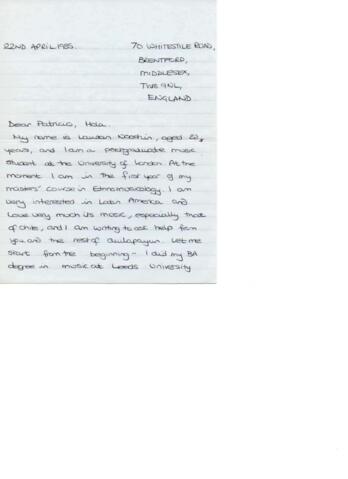 22ND APRIL 1985. 70 WHITESTILE ROAD,
BRENTFORD,
MIDDLESEX,
TW8 9NL,
ENGLAND
Dear Patricio, Hola.
My name is Laudan Nooshin, aged 22
years, and I am a postgraduate music
student at the University of London. At the
moment I am in the first year of my
masters' course in Ethnomusicology. I am
very interested in Latin America and
love very much its music, especially that
of Chile, and I am writing to ask help from
you and the rest of Quilapayun. Let me
start from the beginning - I did my BA
degree in music at Leeds University